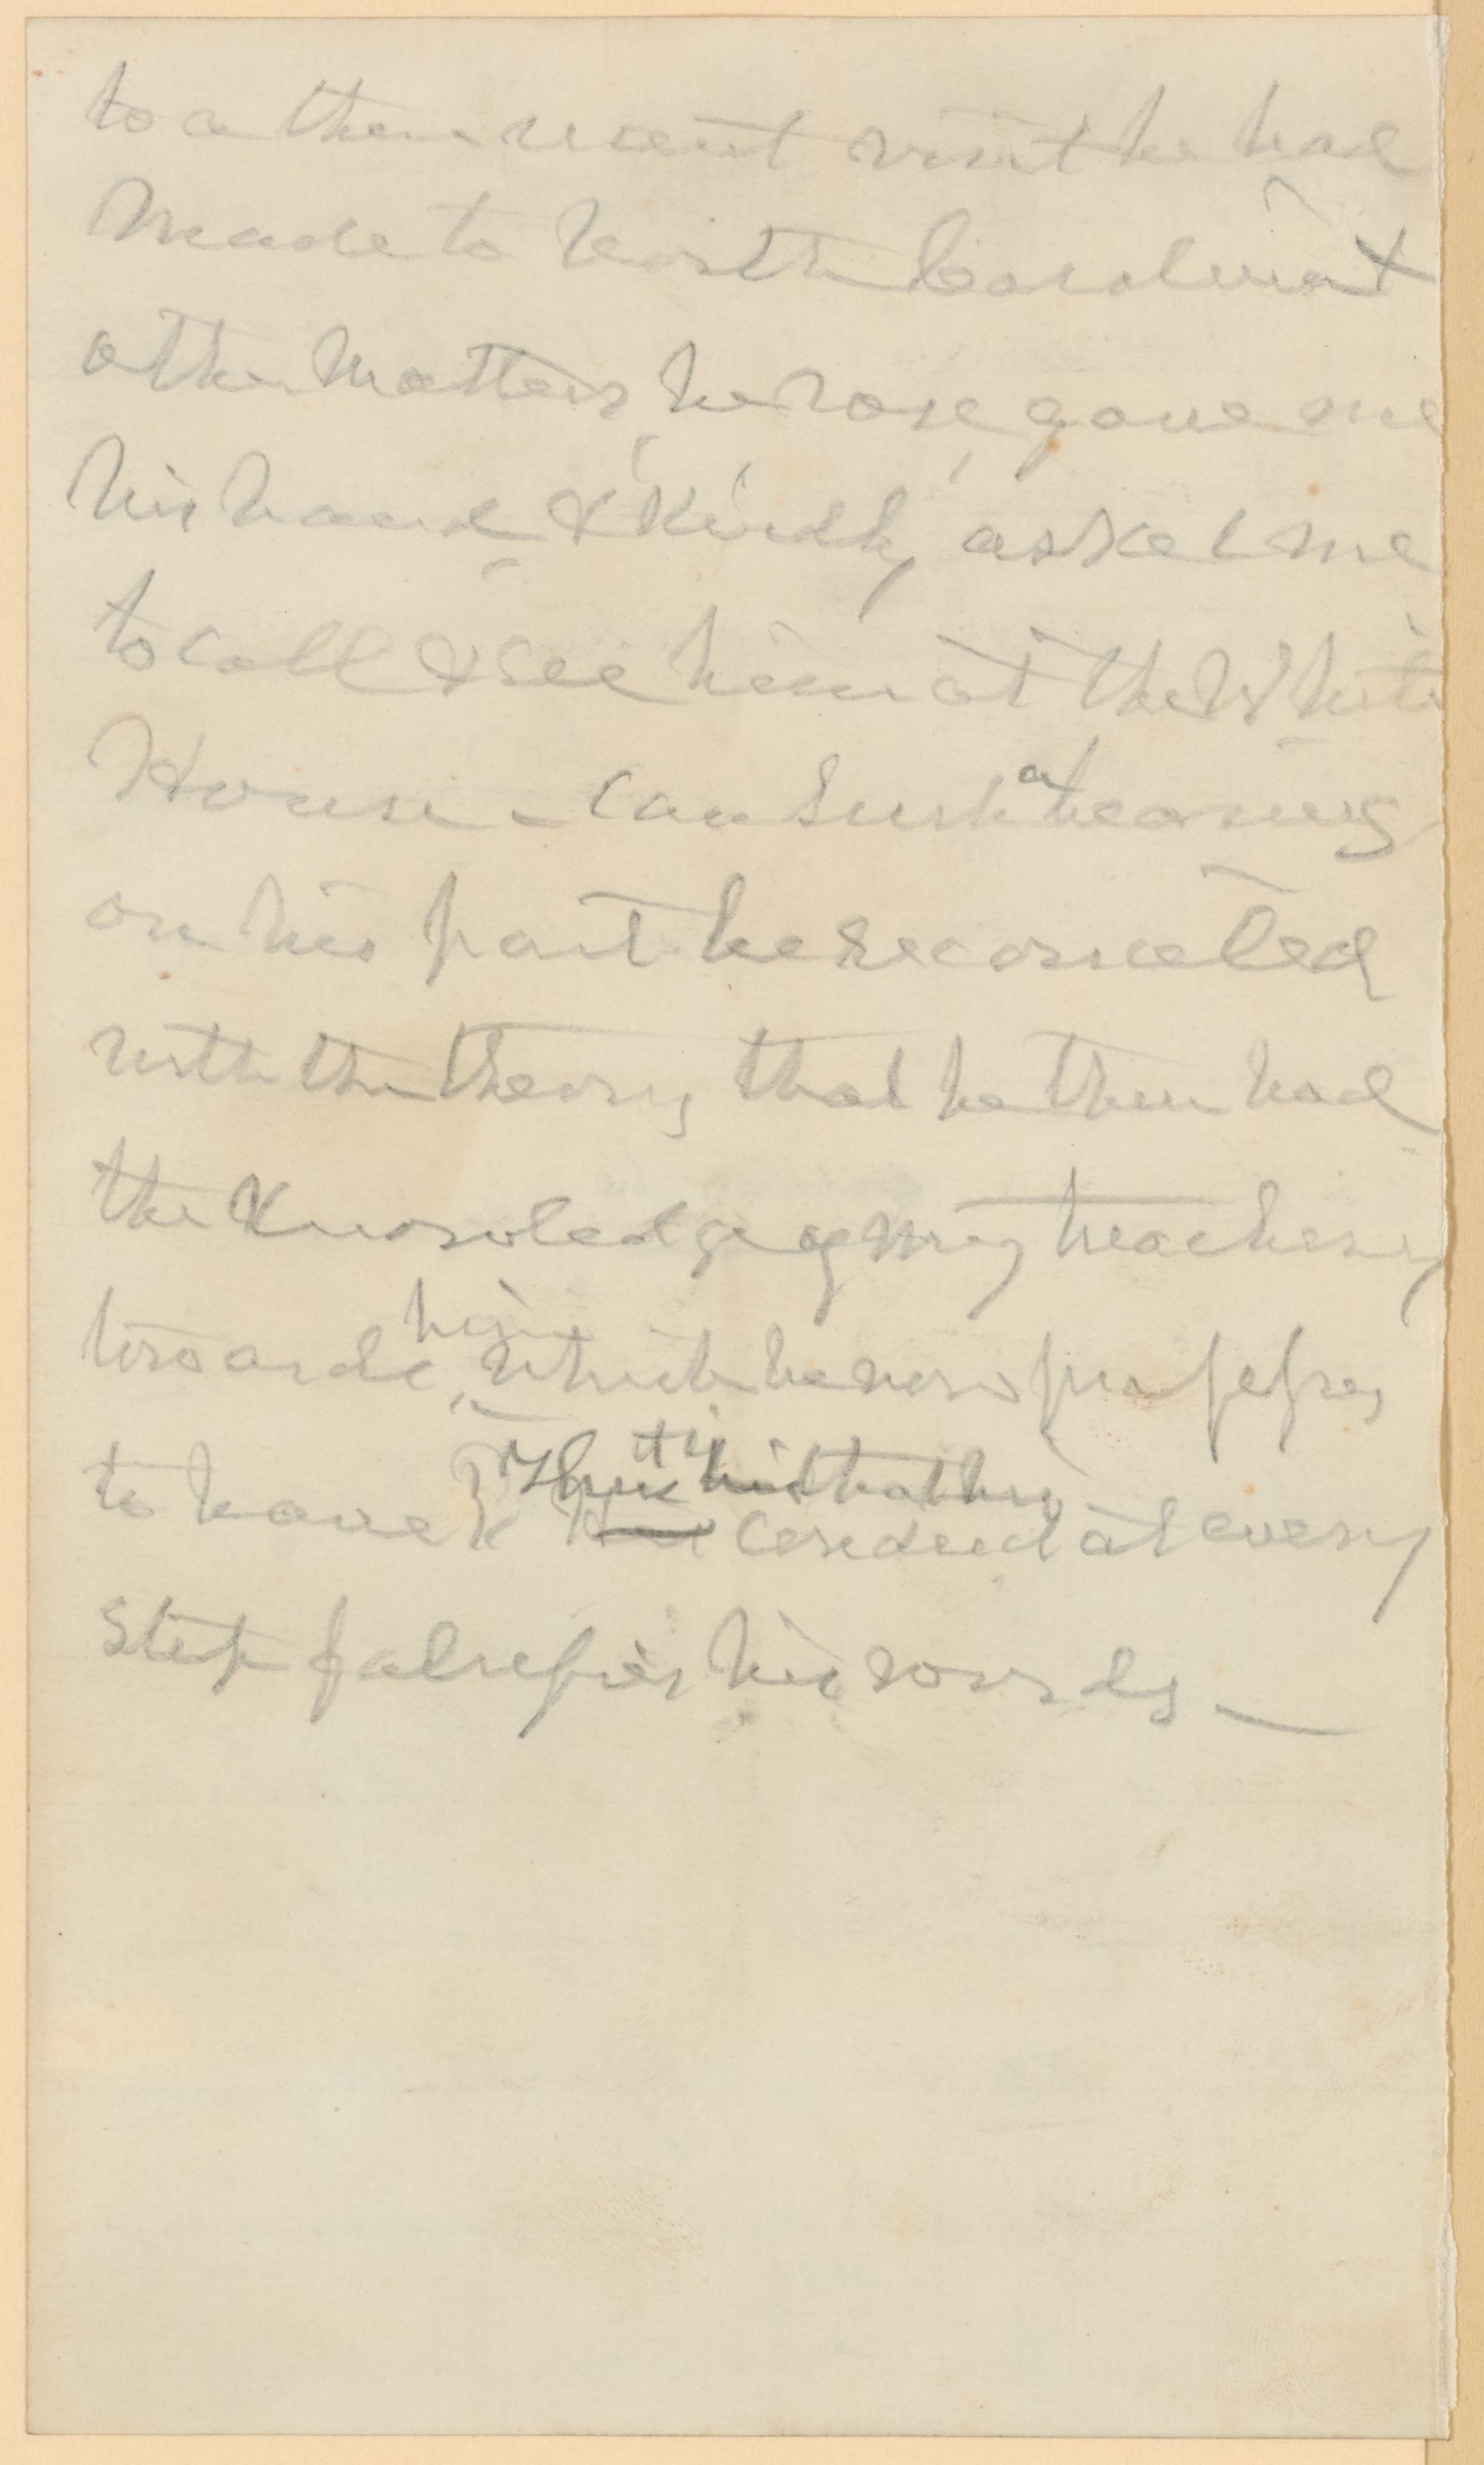 to a then recent visit he had
made to North Carolina &
other matters, he rose, gave me
his hand & kindly asked me
to call & see him at the White
House - can such a bearing
on his part be reconciled
with the theory that he then had
the knowledge of my treachery
towards him, which he now professes
to have Thus it is that his conduct at every
step falsifies his words -